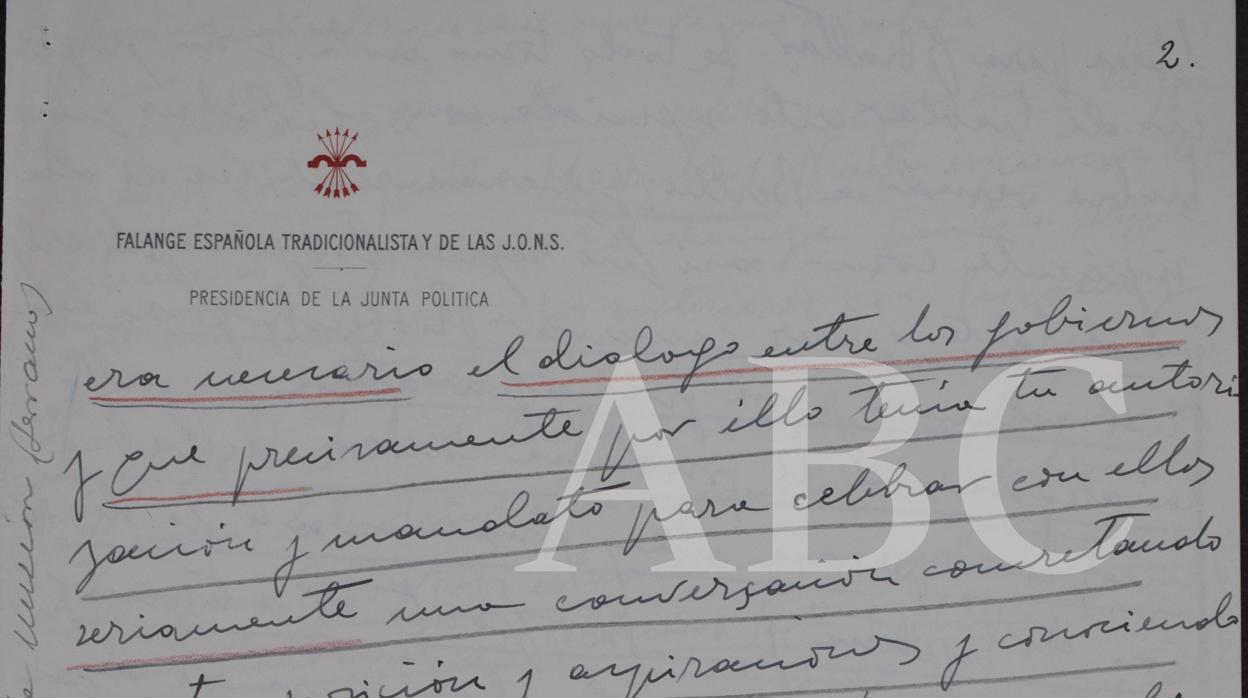 2.
FALANGE ESPAÑOLA TRADICIONALISTA Y DE LAS J.O.N.S.
PRESIDENCIA DE LA JUNTA POLITICA
era necesario el dialogo entre los gobiernos
y que precisamente por ello tenia tu autori
zación y mandato para celebrar con ellos
seriamente una conversación concretando
posición y aspiraciones y conociendo
ABC
Serrano